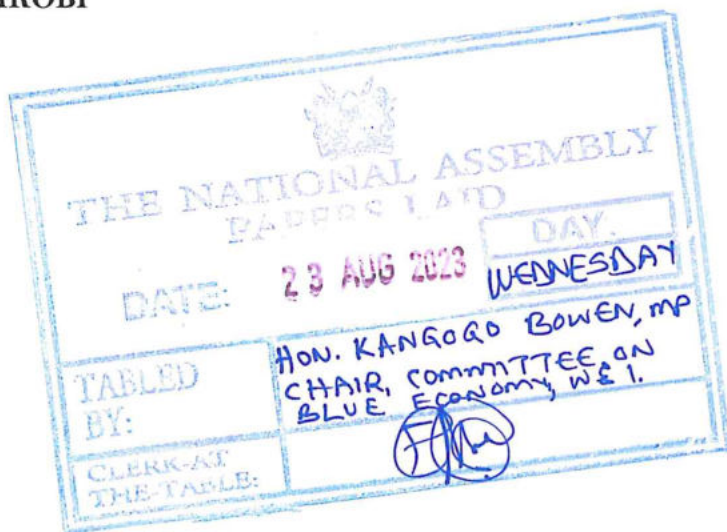 THE NATIONAL ASSEMBLY
PAPERS LAID
DATE: 23 AUG 2023
DAY.
WEDNESDAY
TABLED BY:
HON. KANGOGO BOWEN, MP
CHAIR, COMMITTEE ON
BLUE ECONOMY, W & I.
CLERK-AT
THE-TABLE: